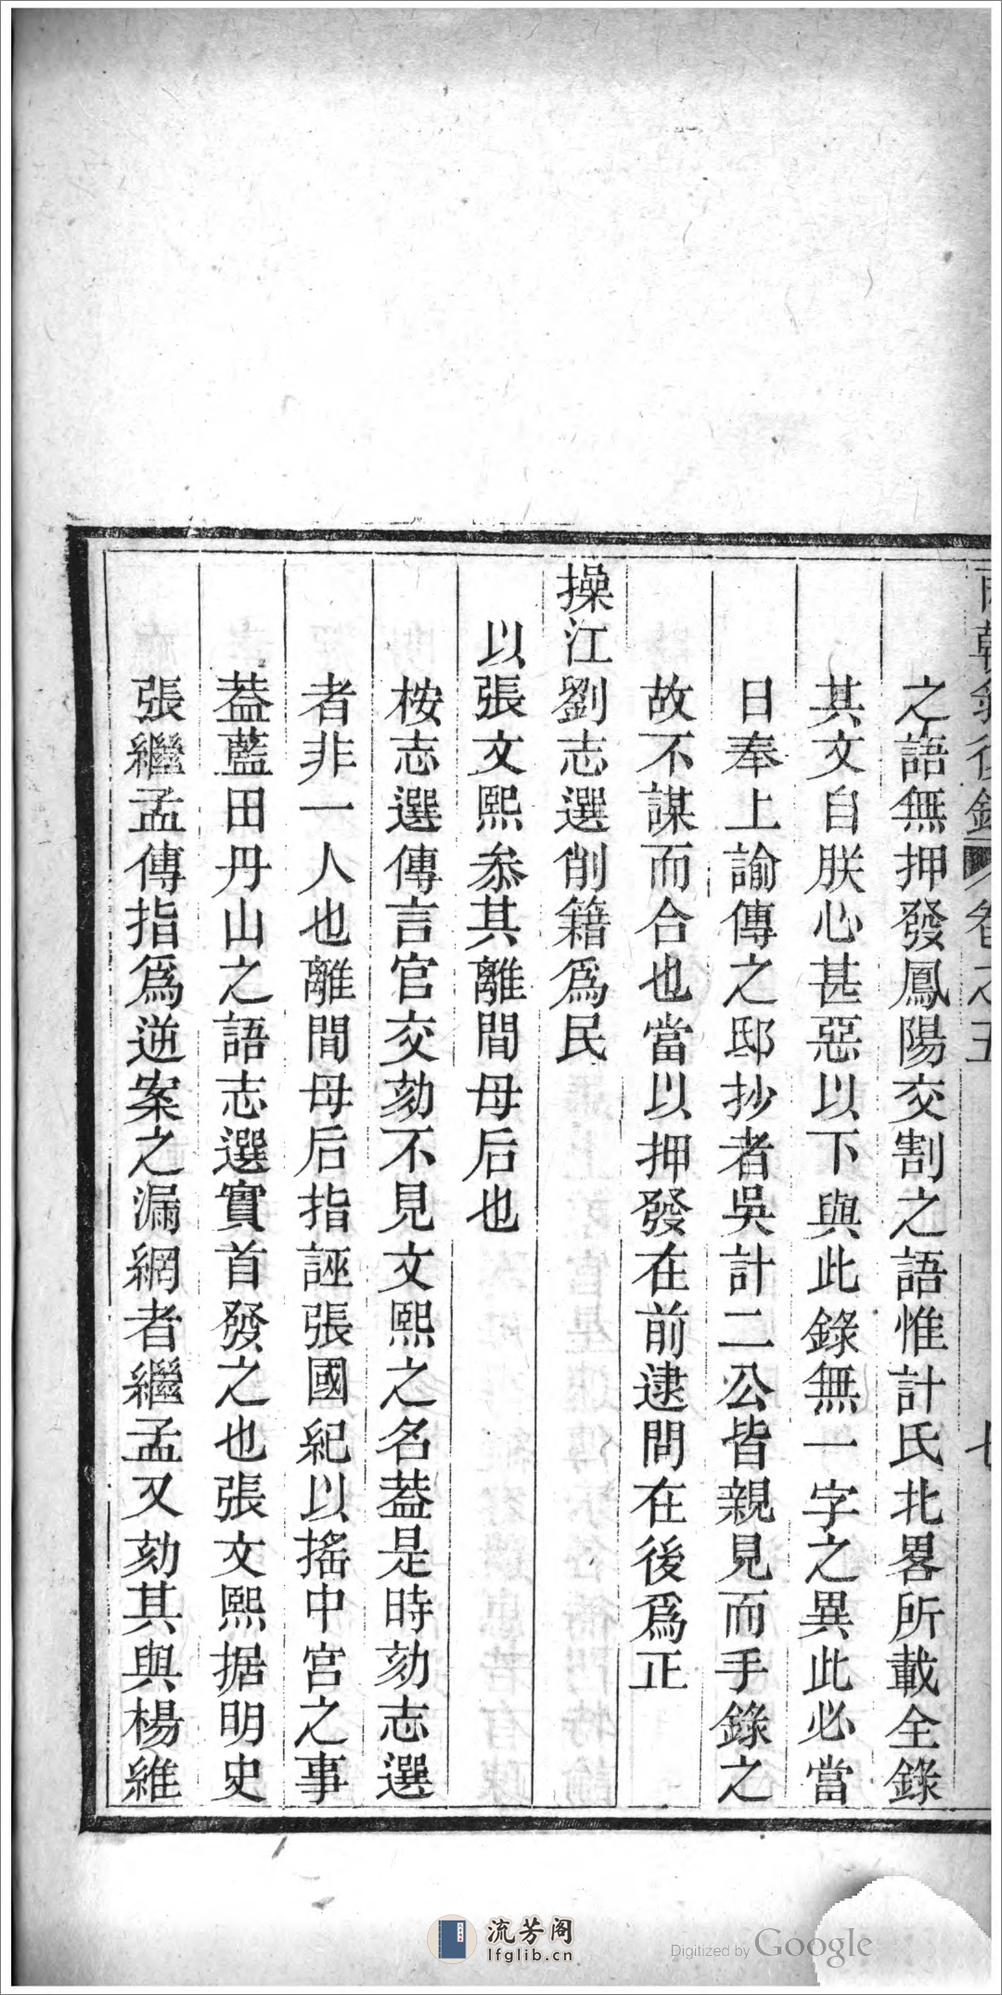 之語無押發鳳陽交割之語惟計氏北畧所載全錄
其文自朕心甚惡以下與此錄無一字之異此必當
日奉上諭傳之邸抄者吳計二公皆親見而手錄之
故不謀而合也當以押發在前逮問在後爲正
操江劉志選削籍爲民
以張文熙叅其離間母后也
桉志選傳言官交劾不見文熙之名葢是時劾志選
者非一人也離間母后指誣張國紀以搖中宮之事
葢藍田丹山之語志選實首發之也張文熙据明史
張繼孟傳指爲逆案之漏網者繼孟又劾其與楊維
流芳阁
lfglib.cn
Digitized by Google